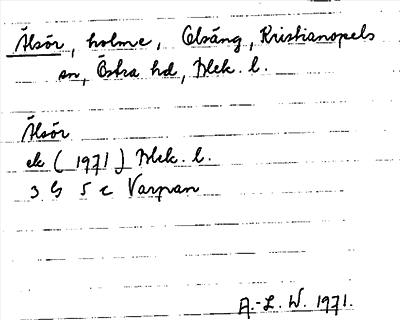 Älsör, holme, Olsäng, Kristianopels
sn, Östra hd, Blek. l.
Älsör
ek (1971) Blek. l.
3 G 5 c Varpan
A.-L. W. 1971.